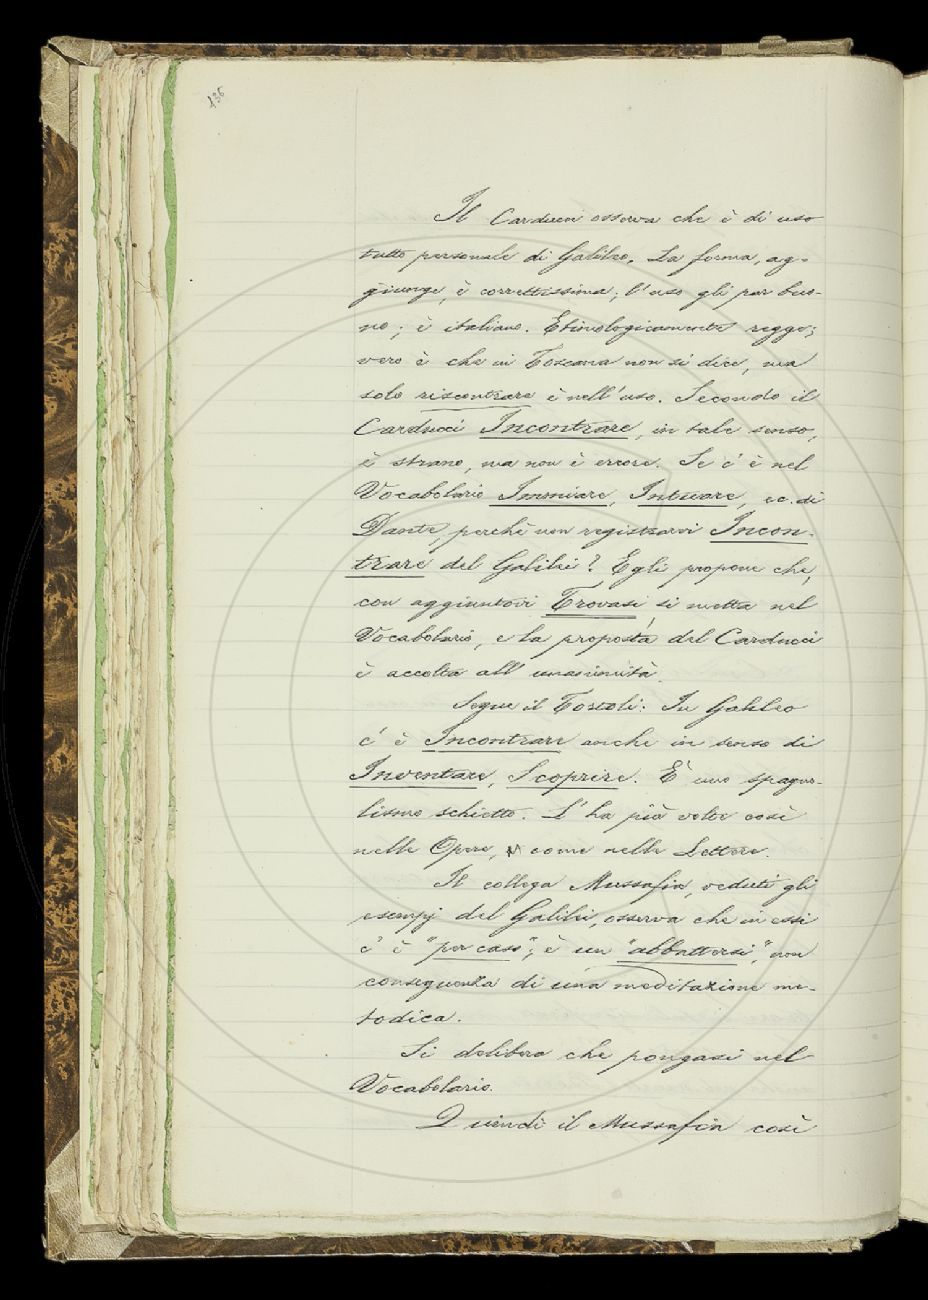 136
Il Carducci osserva che è di uso
tutto personale di Galileo. La forma, ag-
giunge, è correttissima; l'uso gli par buo-
no; è italiano. Etimologicamente regge;
vero è che in Toscana non si dice, ma
solo riscontrare è nell'uso. Secondo il
Carducci Incontrare, in tale senso,
è strano, ma non è errore. Se c'è nel
Vocabolario Immiare, Intuare, ec. di
Dante, perchè non registrarvi Incon-
trare del Galilei? Egli propone che,
con aggiuntovi Trovasi si metta nel
Vocabolario, e la proposta del Carducci
è accolta all'unanimità.
Segue il Tortoli: In Galileo
c'è Incontrare anche in senso di
Inventare, Scoprire. È uno spagno-
lismo schietto. L'ha più volte così
nelle Opere, come nelle Lettere.
Il collega Mussafia, veduti gli
esempj del Galilei, osserva che in essi
c'è "per caso"; è un "abbattersi," non
conseguenza di una meditazione me-
todica.
Si delibera che pongasi nel
Vocabolario.
Quindi il Mussafia così